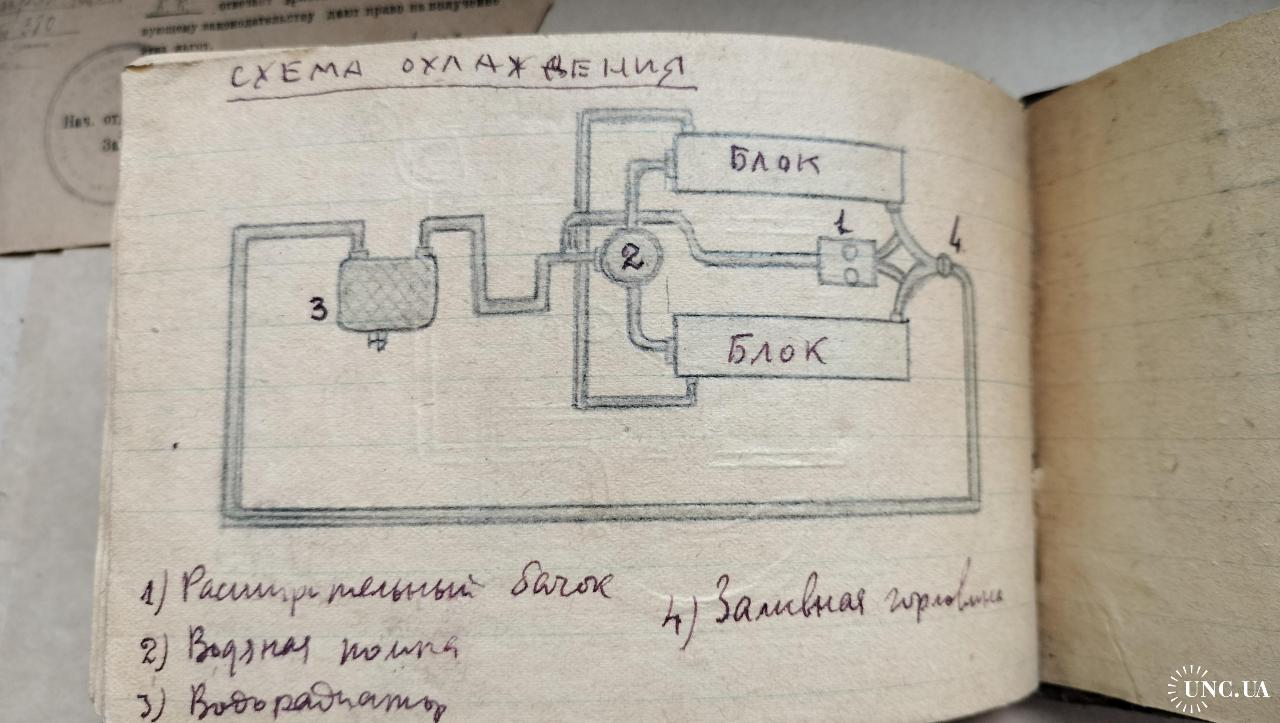 280
отвечает
вующему законодательству дают право на получение
Нач. от
За
СХЕМА ОХЛАЖДЕНИЯ
БЛОК
1
4
2
3
БЛОК
1) Расширительный бачок
4) Заливная горловина
2) Водяная помпа
3) Водорадиатор
UNC.UA